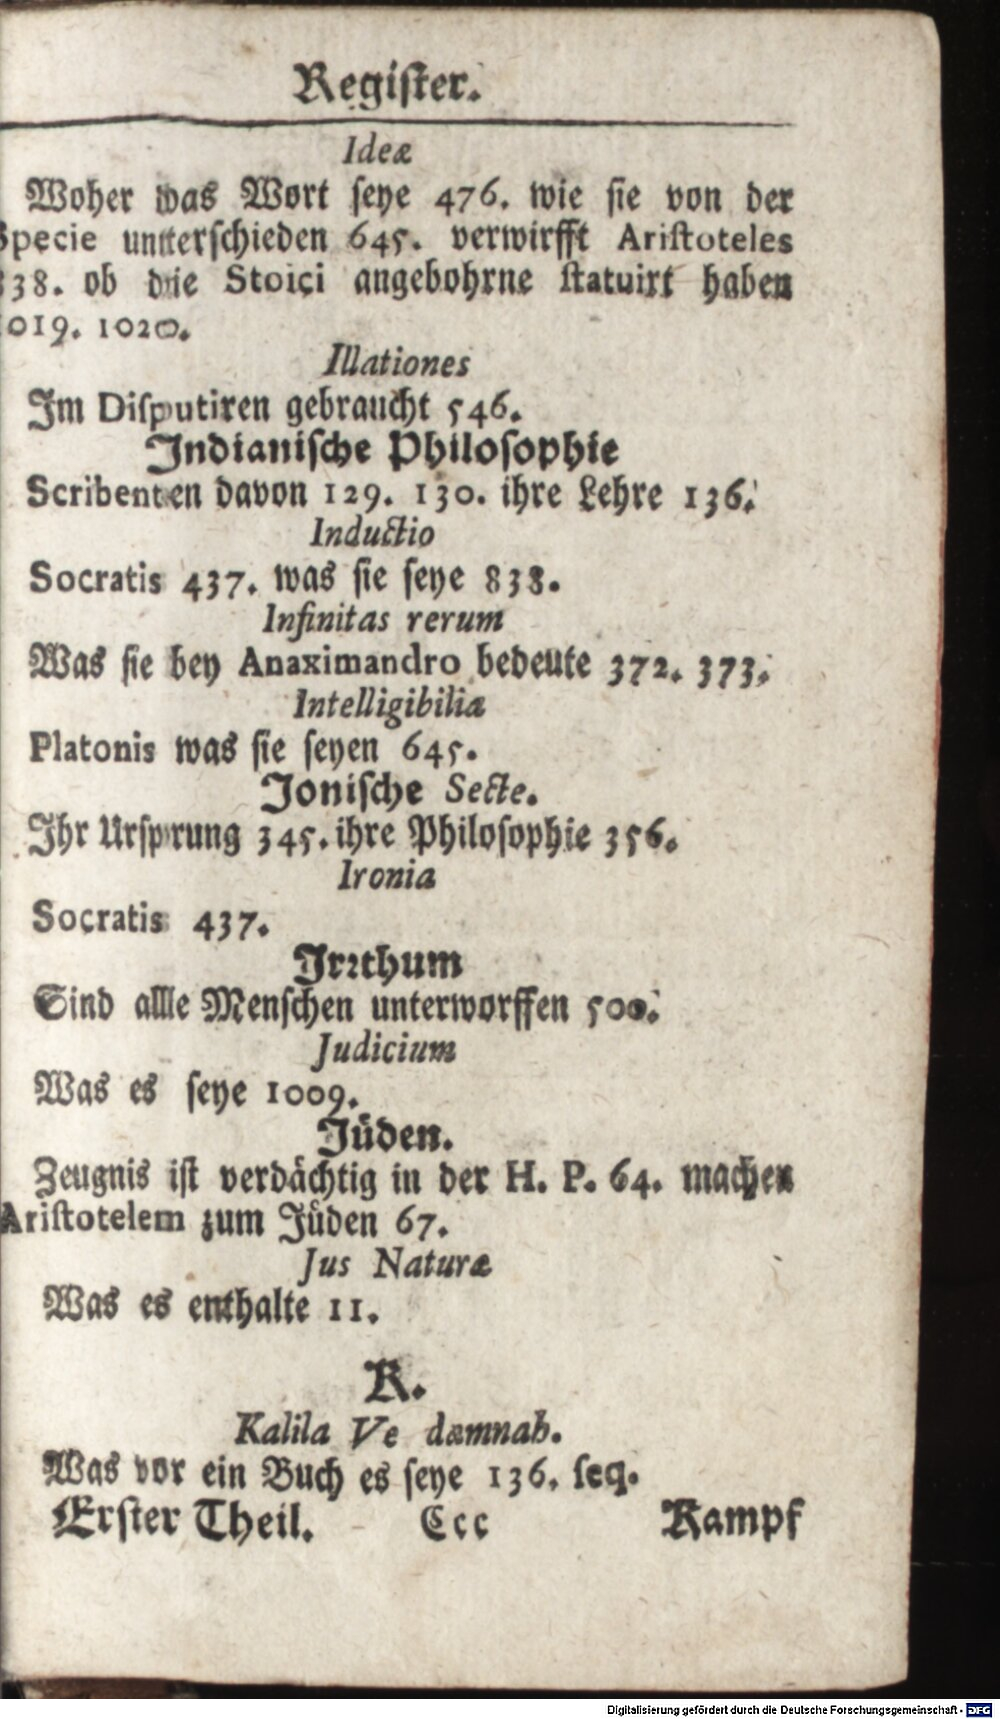 Register.
Ideæ
Woher das Wort seye 476. wie sie von der
Specie untterschieden 645. verwirfft Aristoteles
838. ob die Stoici angebohrne statuirt haben
1019. 1020.
Illationes
Im Disputiren gebraucht 546.
Indianische Philosophie
Scribenten davon 129. 130. ihre Lehre 136.
Inductio
Socratis 437. was sie seye 838.
Infinitas rerum
Was sie bey Anaximandro bedeute 372. 373.
Intelligibilia
Platonis was sie seyen 645.
Jonische Secte.
Ihr Ursprung 345. ihre Philosophie 356.
Ironia
Socratis 437.
Irrthum
Sind alle Menschen unterworffen 500.
Judicium
Was es seye 1009.
Jüden.
Zeugnis ist verdächtig in der H. P. 64. machen
Aristotelem zum Jüden 67.
Jus Naturæ
Was es enthalte 11.
K.
Kalila Ve damnah.
Was vor ein Buch es seye 136. seq.
Erster Theil. Ccc Kampf
Digitalisierung gefördert durch die Deutsche Forschungsgemeinschaft - DFG